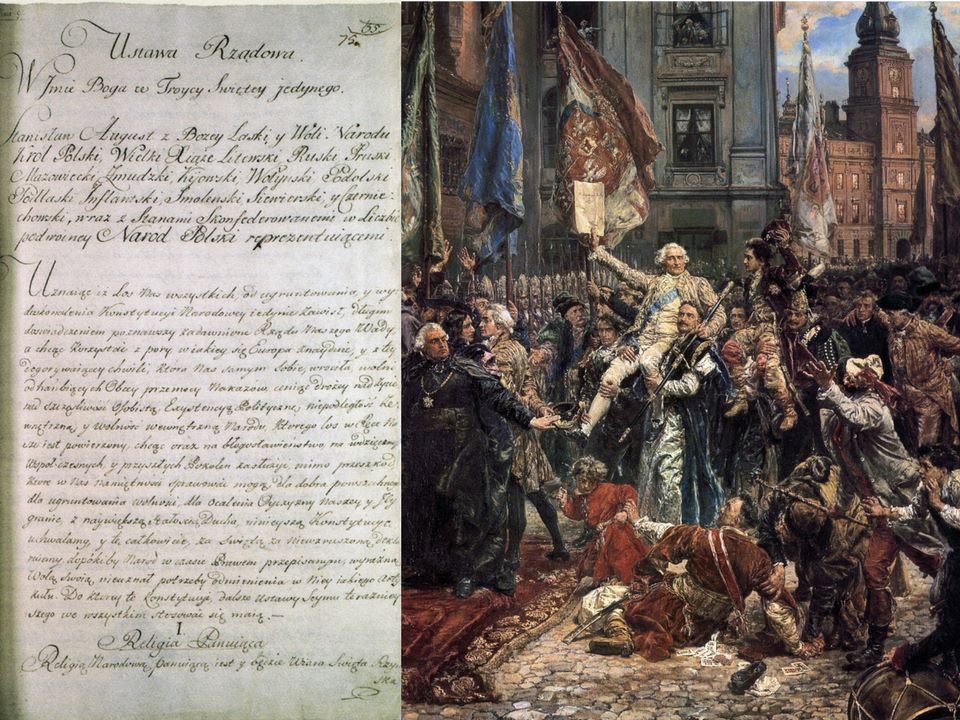 75.
Ustawa Rządowa.
W Imie Boga w Troycy Swiętey jedynego.
Stanisław August z Bożey Łaski, y Woli Narodu
Krol Polski, Wielki Xiąże Litewski, Ruski Pruski
Mazowiecki, Zmudzki, Kijowski, Wołyński, Podolski
Podlaski Inflantski, Smolenski Siewierski, y Czernie-
chowski, wraz z Stanami Skonfederowanemi w Liczbie
podwoiney Narod Polski reprezentuiącemi.
Uznaiąc iż Los Nas wszystkich, od ugruntowania, y wy
doskonalenia Konstytucyi Narodowey iedynie zawisł, długim
doświadczeniem poznawszy zadawnione Rządu Naszego Wady,
a chcąc korzystać z pory w iakiey się Europa znayduie, y z tey
dogorywaiącey chwili, ktora Nas samym Sobie wrociła, wolni
od hańbiących Obcey przemocy Nakazow, ceniąc Drożey nad życie
nad szczęśliwość Osobistą Exystencyą Polityczną, niepodległość Ze-
wnętrzną, y wolność wewnętrzną Narodu, ktorego los w Ręce Na
sze iest powierzony, chcąc oraz na błogosławieństwo, na wdzięczność
Wspołczesnych y przyszłych Pokoleń zasłużyć, mimo przeszkod,
ktore w Nas Namiętności sprawować mogą Dla dobra powszechnego
dla ugruntowania Wolności, dla Ocalenia Oyczyzny Naszey y Jey
granic, z naywiększą stałością Ducha, ninieyszą Konstytucyę
uchwalamy, y tę całkowicie, za Swiętą, za Niewzruszoną dekla
ruiemy, dopokiby Narod w czasie Prawem przepisanym, wyraźną
Wolą Swoią, nieuznał potrzeby odmienienia w Niey iakiego Arty
kułu. Do ktorey to Konstytucyi, dalsze Ustawy Seymu teraźniey
szego we wszystkim stosować się maią. —
I
Religia Panuiąca
Religią Narodową panuiącą iest y będzie Wiara Swięta Rzym
ska